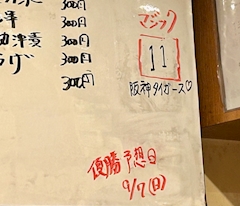 300円
300円
漬 300円
ラグ 300円
300円
マジック
11
阪神タイガース♡
優勝予想日
9/7(日)